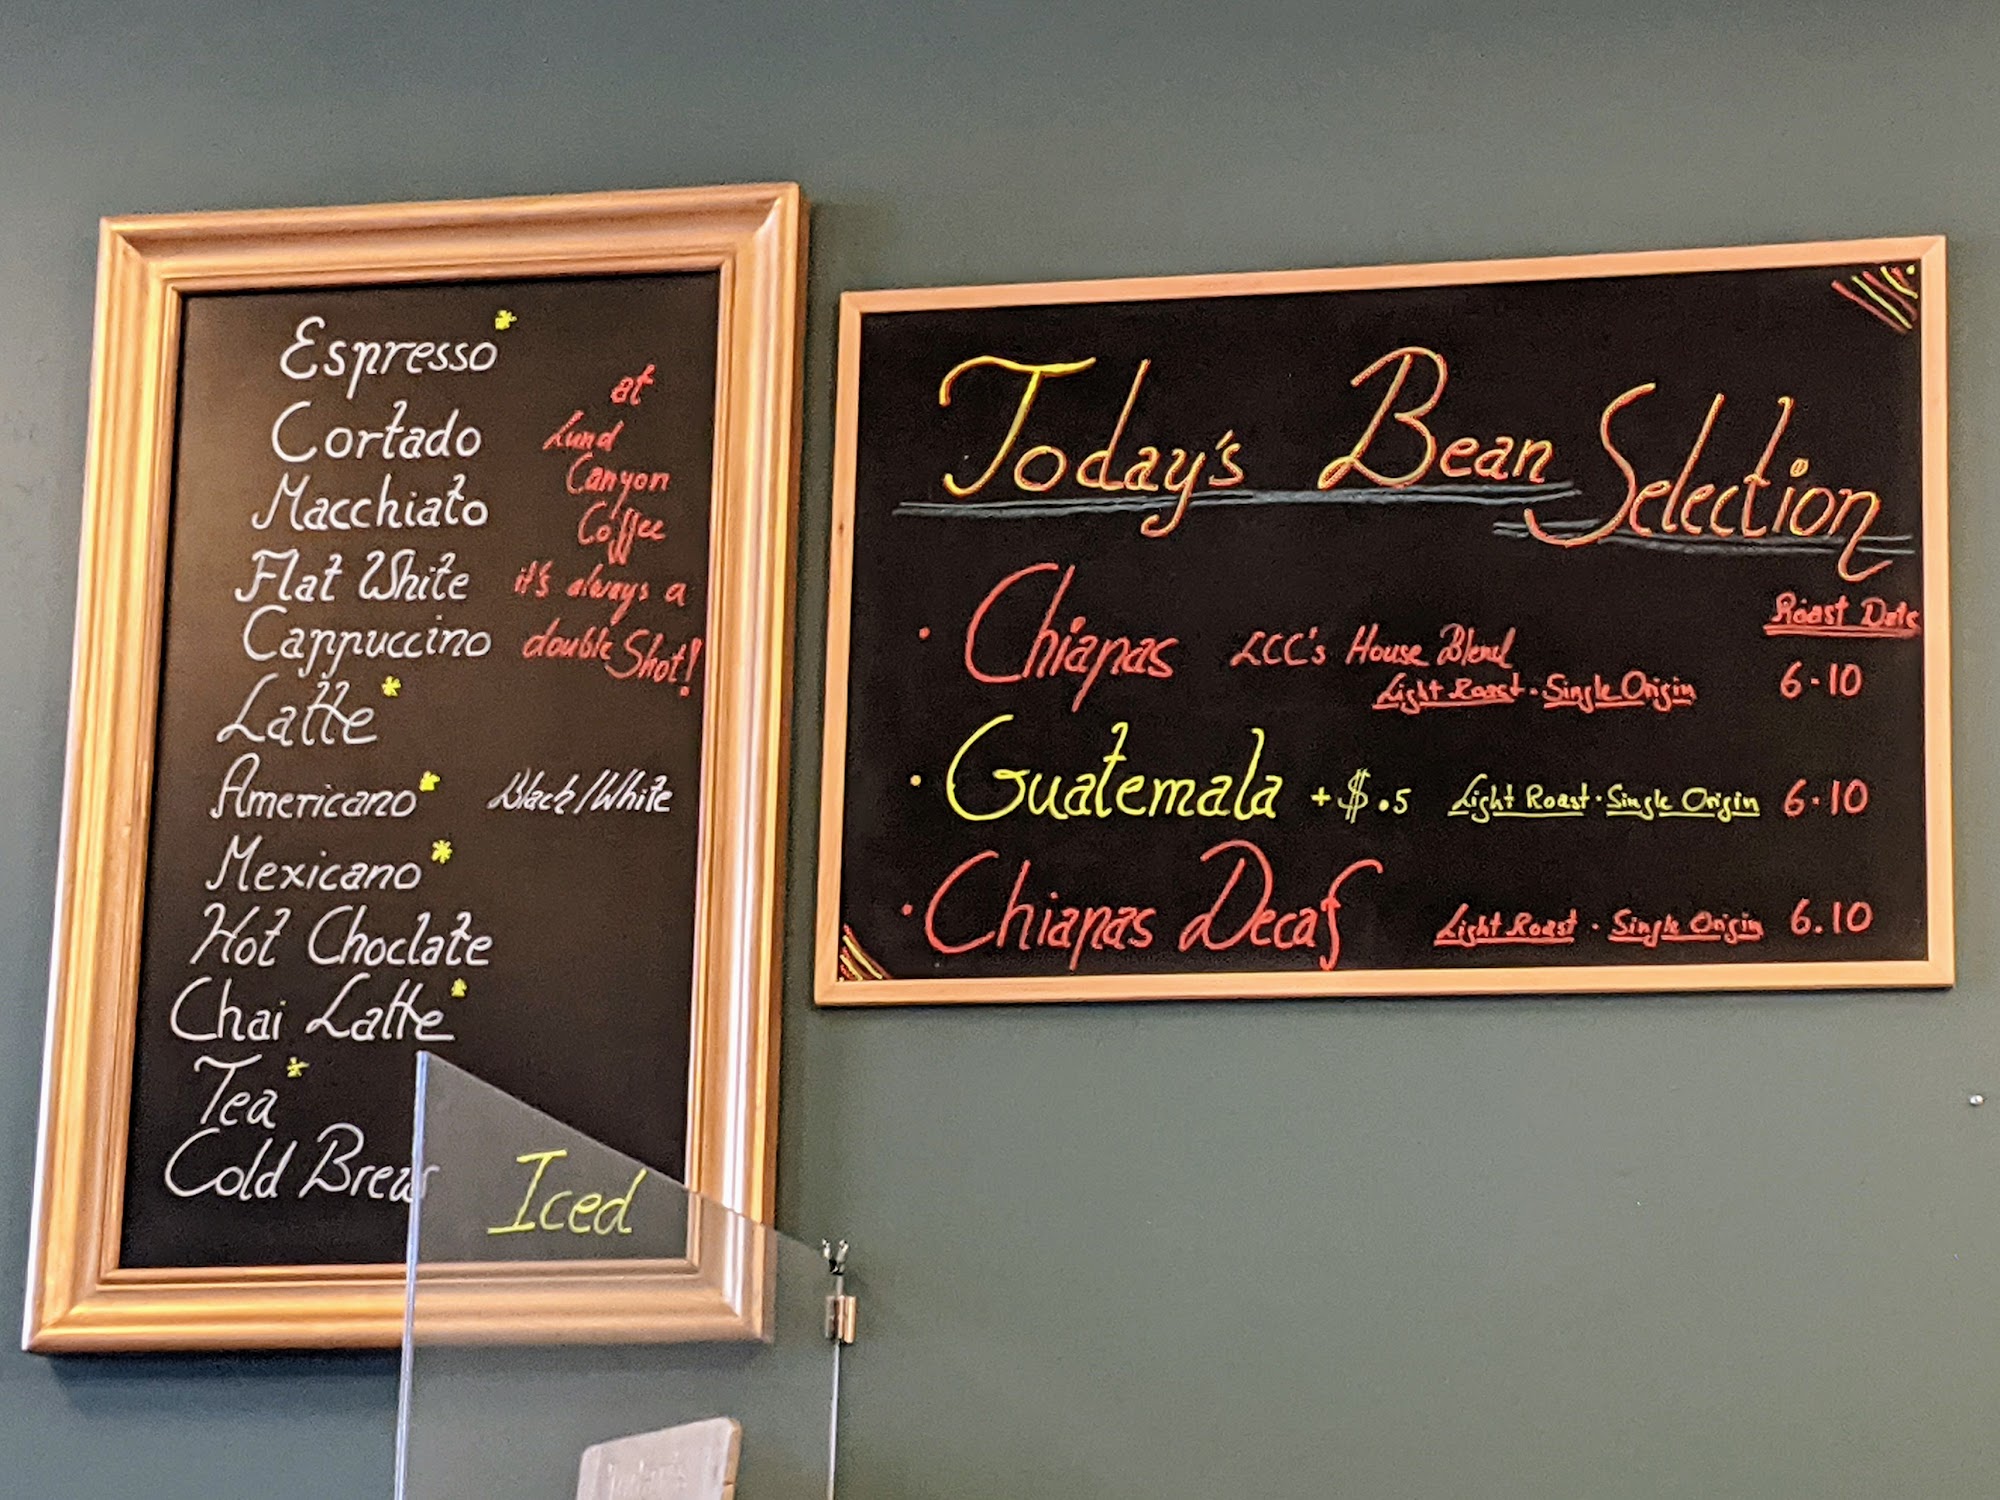 Espresso*
Cortado
Macchiato
Flat White
Cappuccino
Latte*
Americano* Black/White
Mexicano*
Hot Choclate
Chai Latte*
Tea*
Cold Brew
Iced
at
Lund
Canyon
Coffee
it's always a
double Shot!
Today's Bean Selection
Roast Date
· Chiapas LCC's House Blend
Light Roast · Single Origin 6·10
· Guatemala +$.5 Light Roast · Single Origin 6·10
· Chiapas Decaf Light Roast · Single Origin 6.10